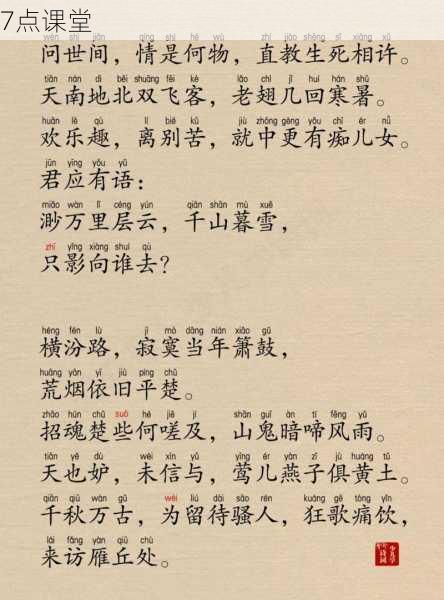 7点课堂
wèn shì jiān qíng shì hé wù zhí jiào shēng sǐ xiāng xǔ
问世间，情是何物，直教生死相许。
tiān nán dì běi shuāng fēi kè lǎo chì jǐ huí hán shǔ
天南地北双飞客，老翅几回寒暑。
huān lè qù lí bié kǔ jiù zhōng gèng yǒu chī ér nǚ
欢乐趣，离别苦，就中更有痴儿女。
jūn yīng yǒu yǔ
君应有语：
miǎo wàn lǐ céng yún qiān shān mù xuě
渺万里层云，千山暮雪，
zhī yǐng xiàng shuí qù
只影向谁去？
héng fén lù jì mò dāng nián xiāo gǔ
横汾路，寂寞当年箫鼓，
huāng yān yī jiù píng chǔ
荒烟依旧平楚。
zhāo hún chǔ suò hé jiē jí shān guǐ àn tí fēng yǔ
招魂楚些何嗟及，山鬼暗啼风雨。
tiān yě dù wèi xìn yǔ yīng ér yàn zǐ jù huáng tǔ
天也妒，未信与，莺儿燕子俱黄土。
qiān qiū wàn gǔ wèi liú dài sāo rén kuáng gē tòng yǐn
千秋万古，为留待骚人，狂歌痛饮，
lái fǎng yàn qiū chù
来访雁丘处。